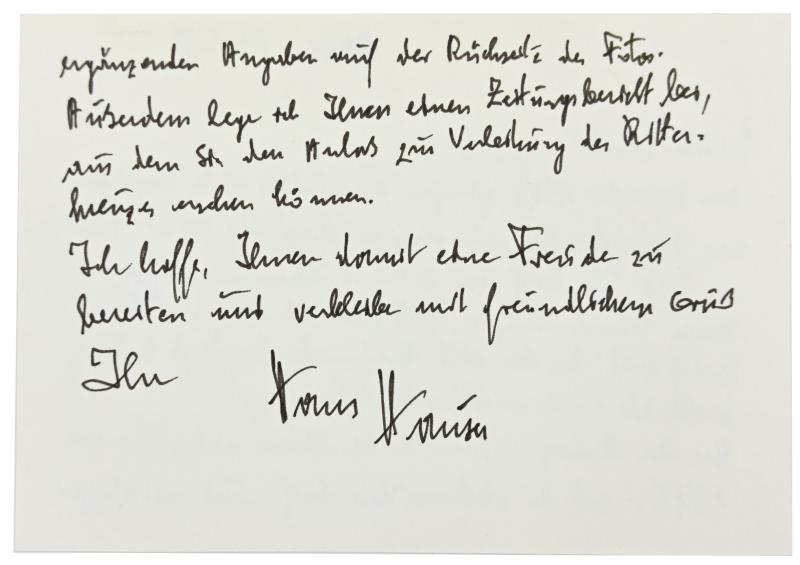 ergänzenden Angaben auf der Rückseite des Fotos.
Außerdem lege ich Ihnen einen Zeitungsbericht bei,
aus dem Sie den Anlaß zur Verleihung des Ritter-
kreuzes ersehen können.
Ich hoffe, Ihnen damit eine Freude zu
bereiten und verbleibe mit freundlichem Gruß
Ihr Hans